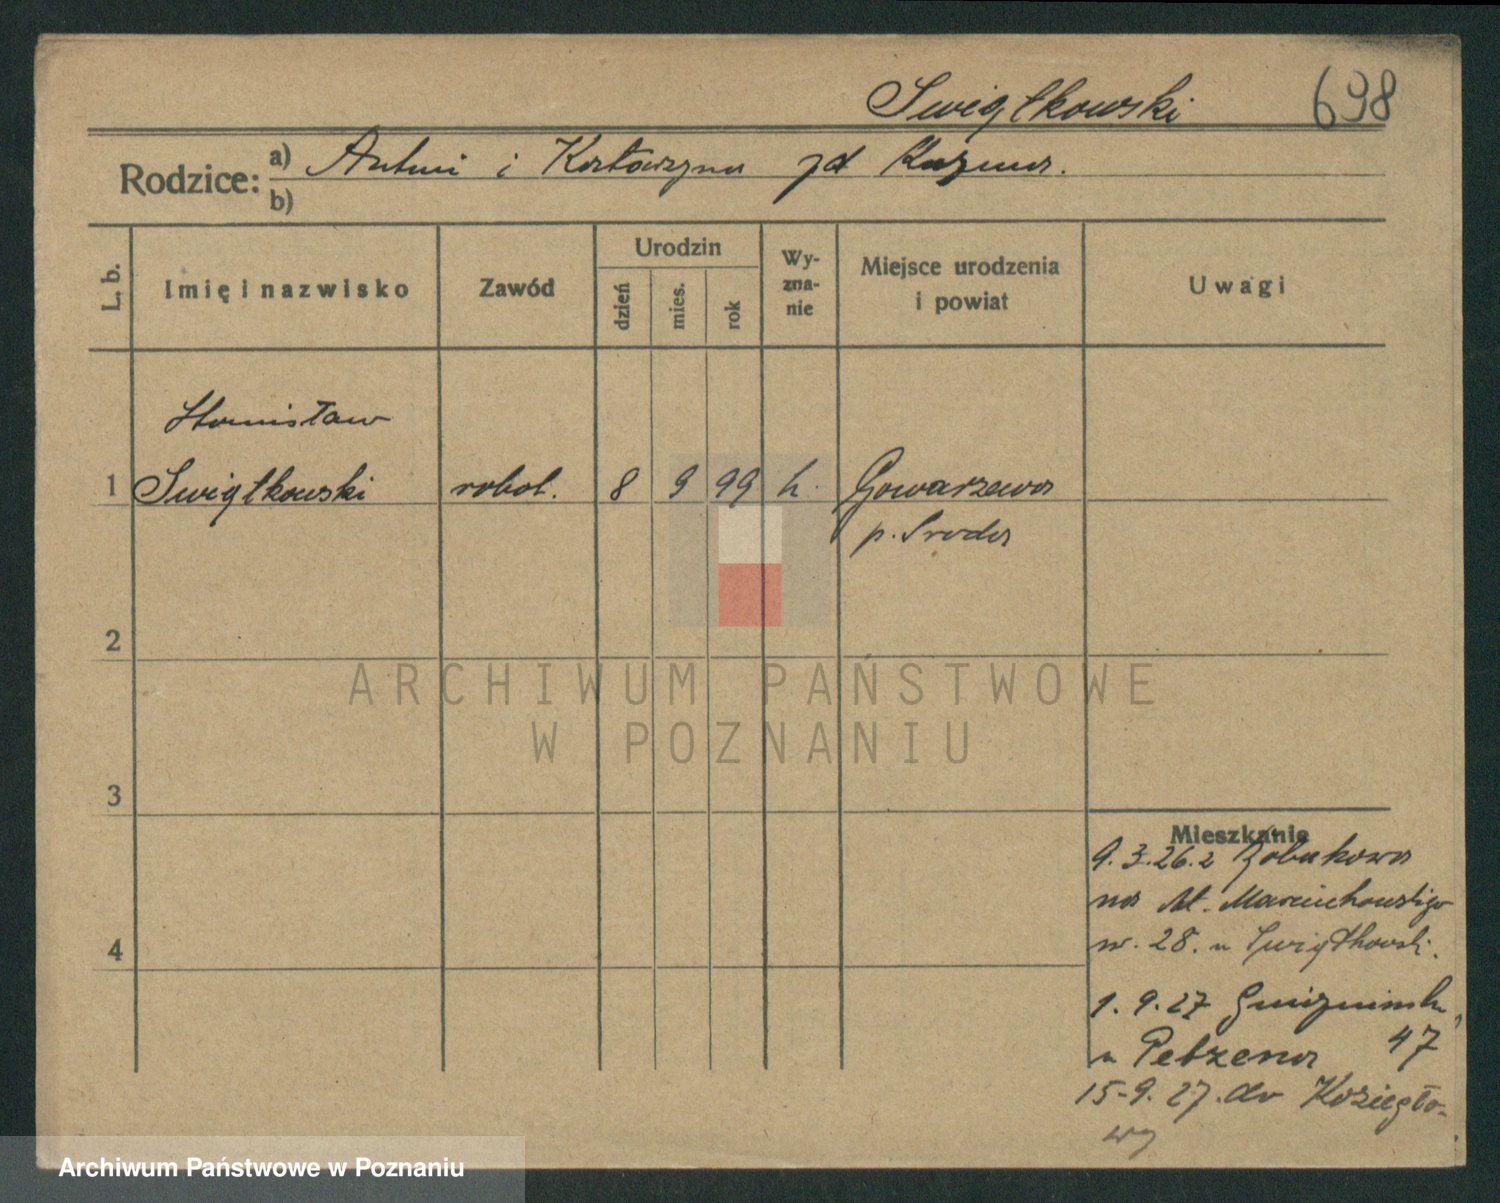 Swiątkowski 698
Rodzice: a) Antoni i Katarzyna zd Kuzma.
b)
L. b. Imię i nazwisko Zawód Urodzin Wyznanie Miejsce urodzenia i powiat Uwagi
dzień mies. rok
Stanisław
1 Swiątkowski robot. 8 9 99 k. Gowarzewo
p. Sroda
2
ARCHIWUM PAŃSTWOWE
W POZNANIU
3
Mieszkanie
9.3.26. z Żabikowa
na M. Marcinkowskiego
4
w. 28. u Swiątkowski.
1.9.27 Gnieźnieńska
47
u Petzena
15-9.27. do Koziegło-
wy
Archiwum Państwowe w Poznaniu